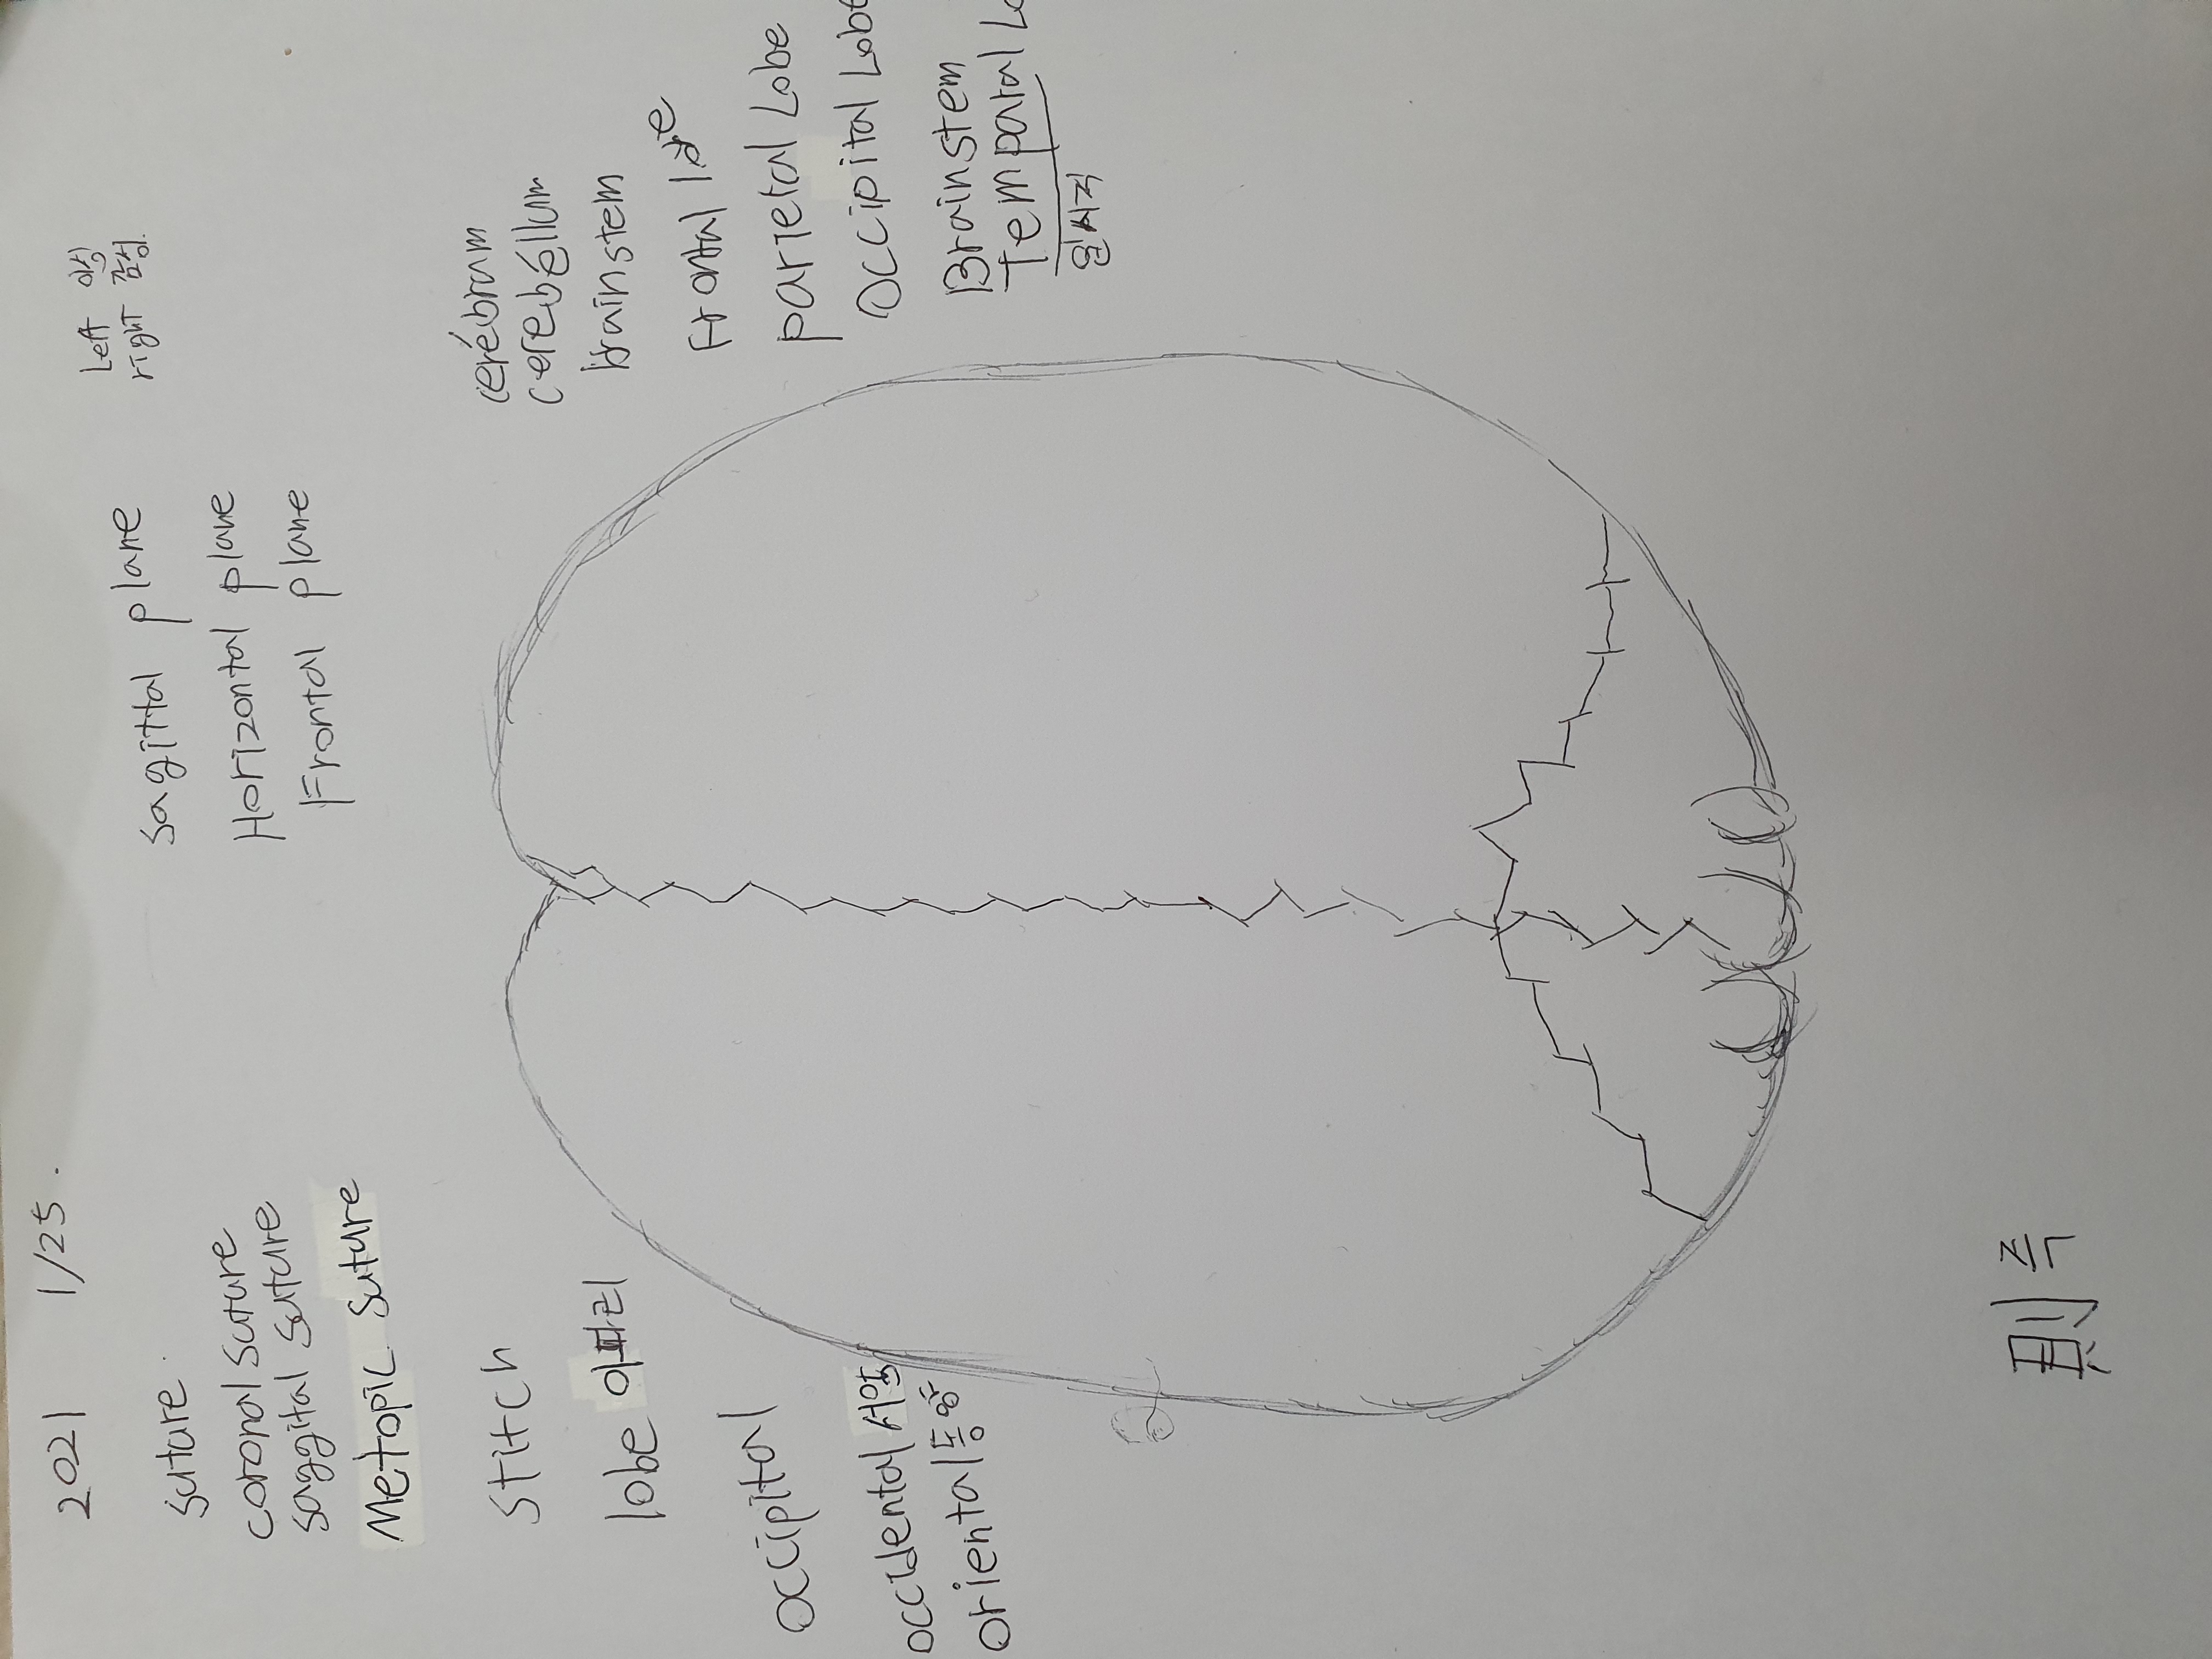 2021 1/25.
suture.
coronal suture
saggital suture
Metopic suture
stitch
lobe 이파리
occipital
occidental 서양
oriental 동양
則 즉
sagittal plane
Horizontal plane
Frontal plane
Left
right 감성.
cerébrum
cerebéllum
brainstem
Frontal lobe
parietal Lobe
Occipital Lobe
Brainstem
Temparal
일시적